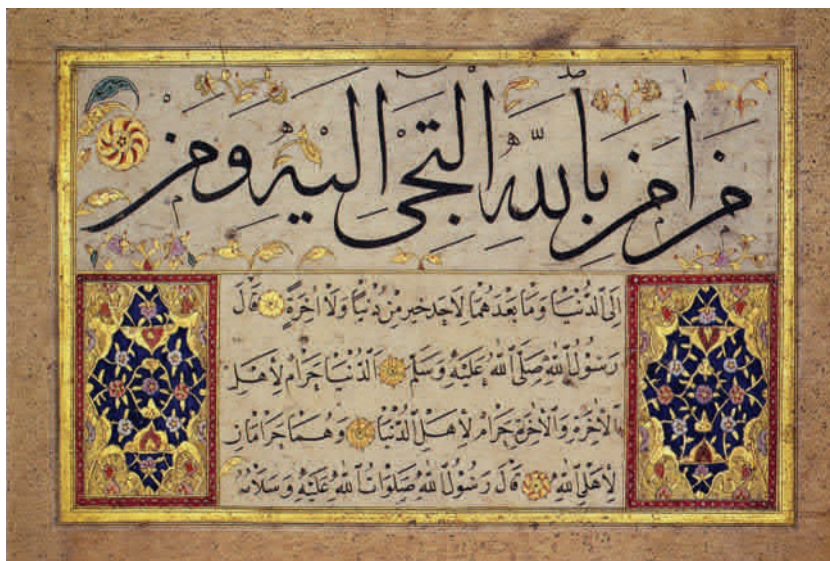 من امن بالله التجى اليه ومن
الى الدُّنْيَا وَمَا بَعْدَهُمَا لِاَحَدٍ خير مِنْ دُنْيَا وَلَا اٰخِرَةٍ قَالَ
رَسُوْلُ اللّٰهِ صَلَّى اللّٰهُ عَلَيْهِ وَسَلَّمَ اَلدُّنْيَا حَرَامٌ لِاَهْلِ
الْاٰخِرَةِ وَالْاٰخِرَةُ حَرَامٌ لِاَهْلِ الدُّنْيَا وَهُمَا حَرَامَانِ
لِاَهْلِ اللّٰهِ قَالَ رَسُوْلُ اللّٰهِ صَلَوَاتُ اللّٰهِ عَلَيْهِ وَسَلَامُهُ